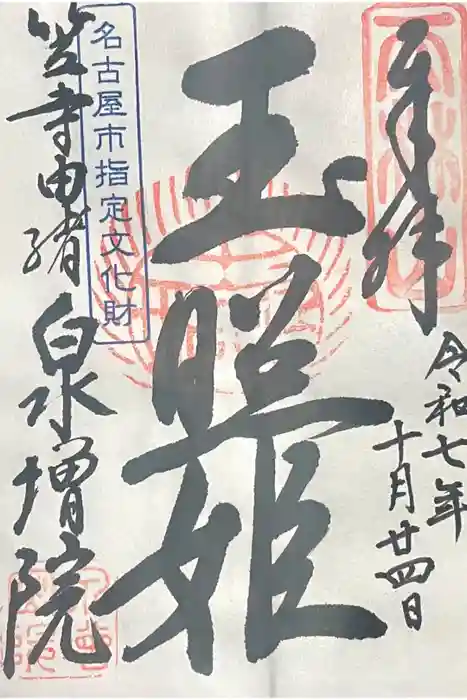 奉拝
令和七年
十月廿四日
玉照姫
名古屋市指定文化財
笠寺由緒 泉増院